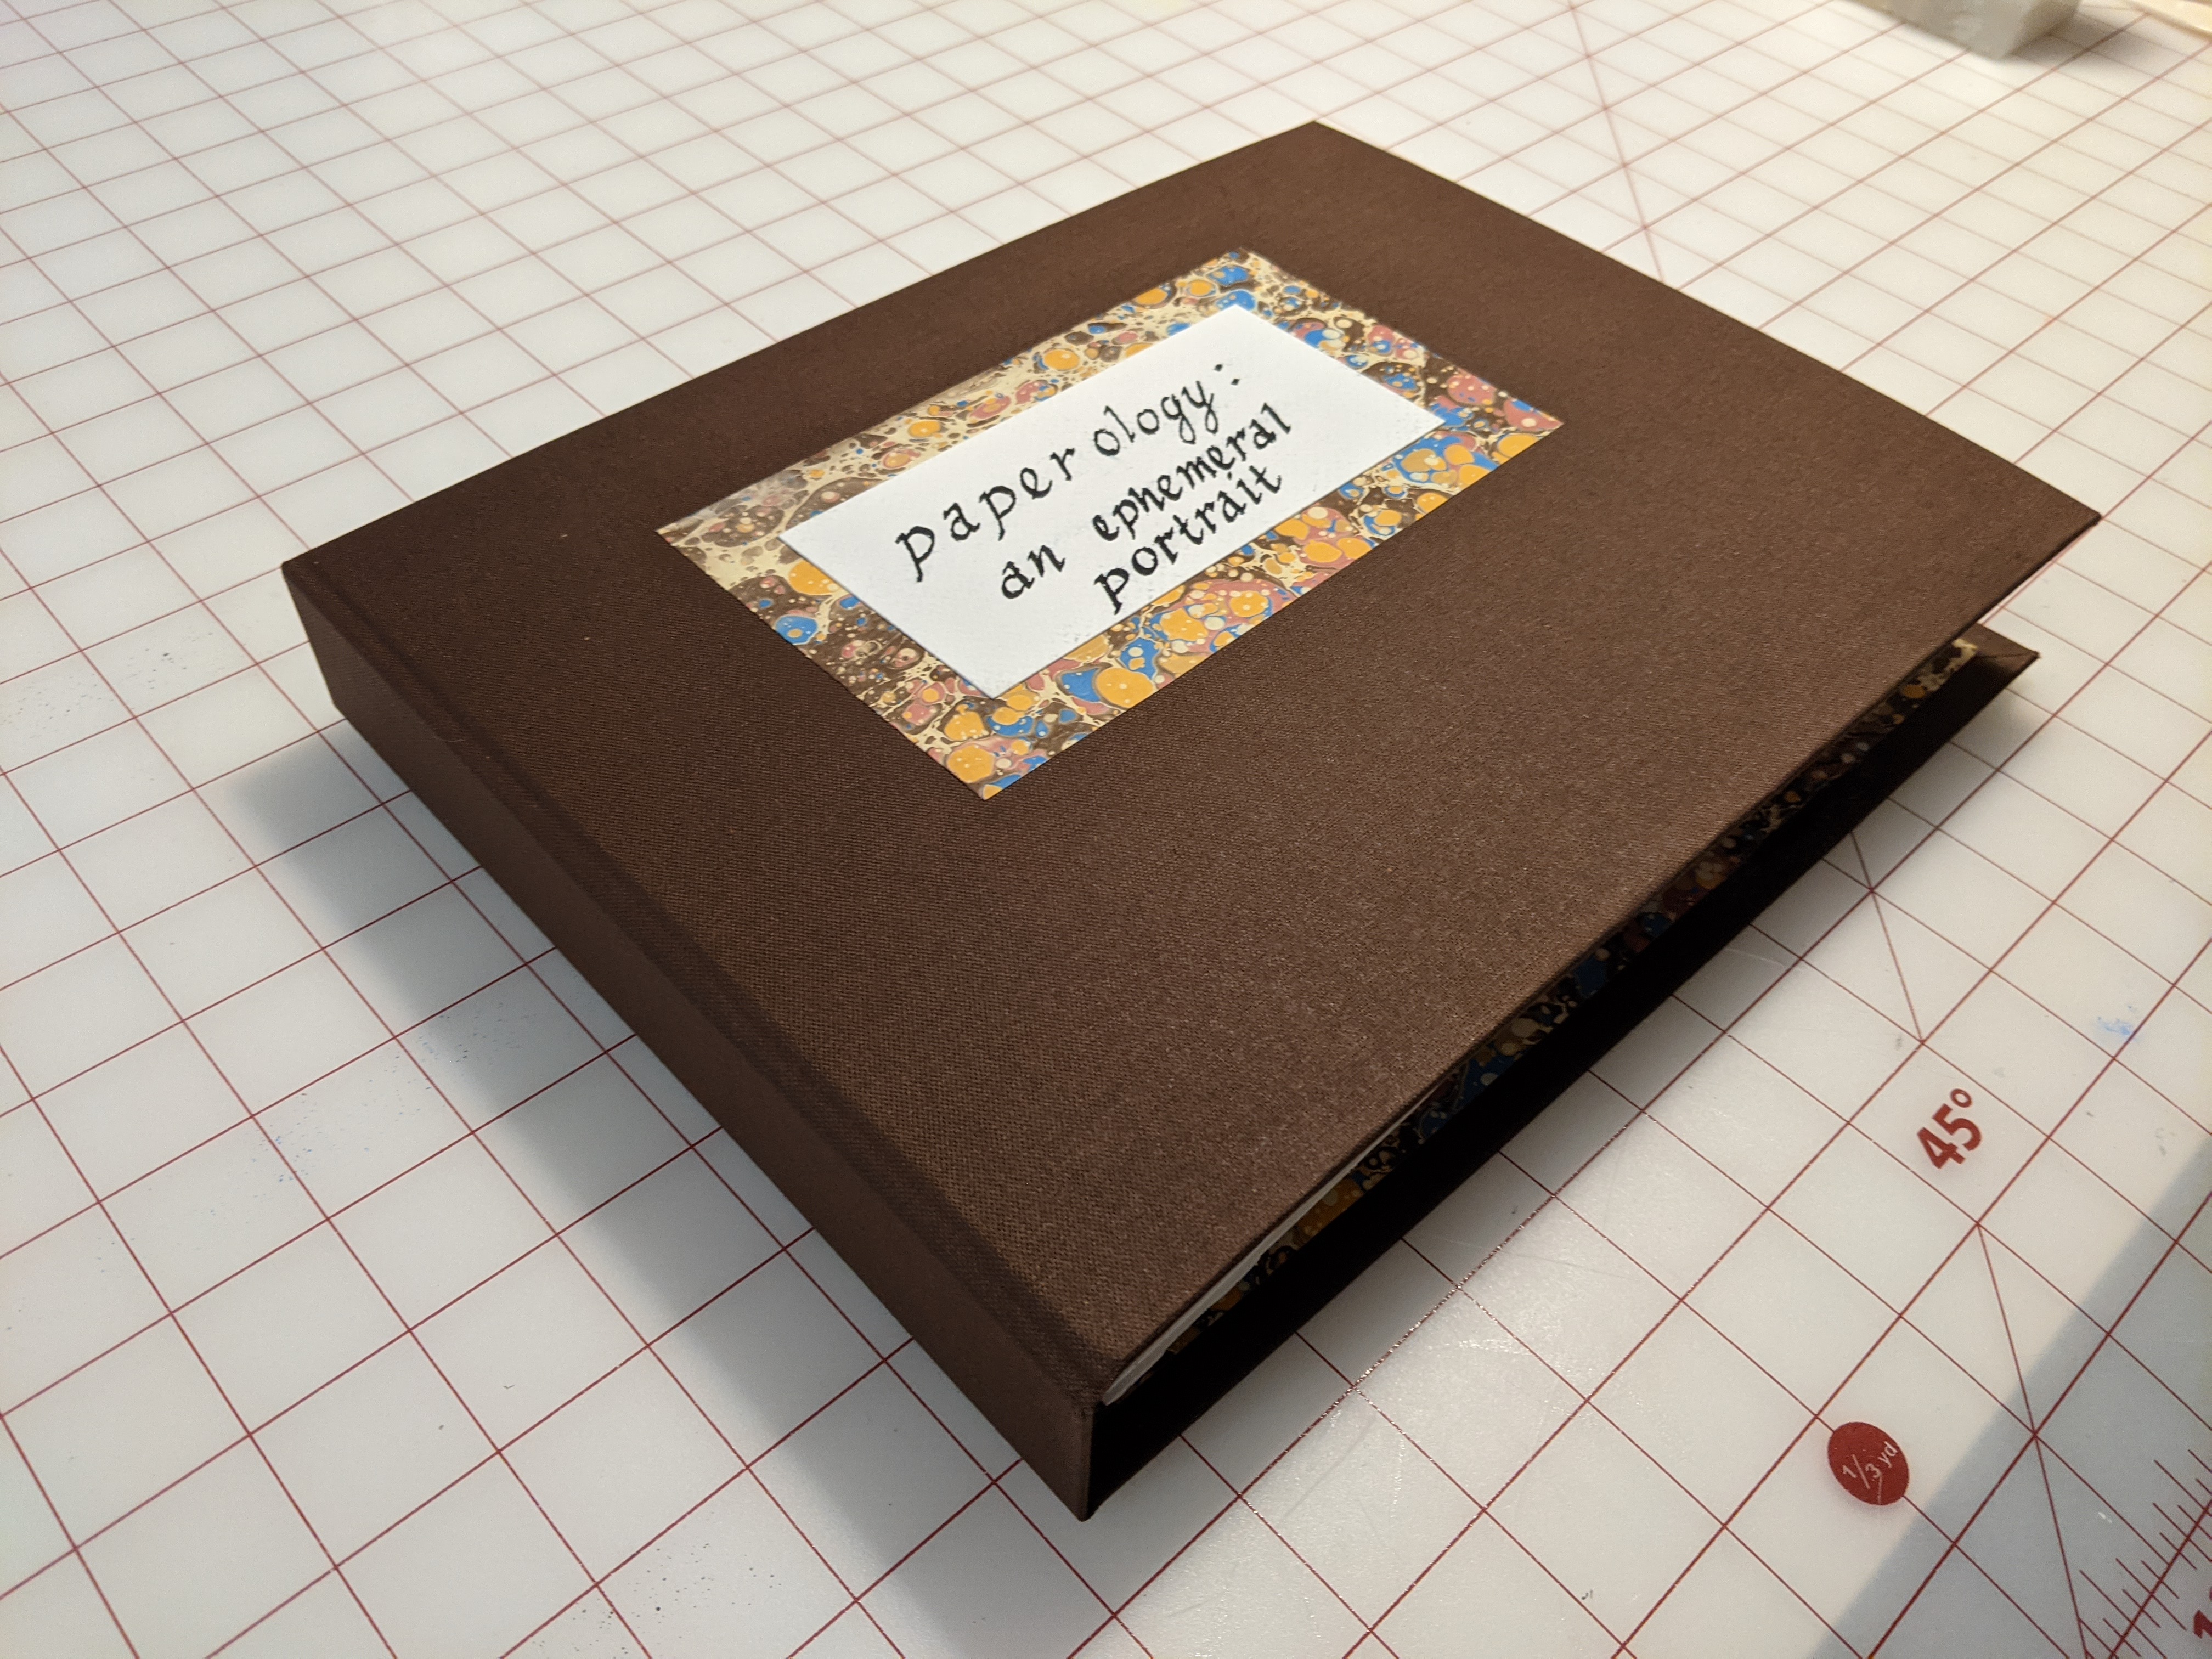 paperology:
an ephemeral
portrait
45°
1/3 yd